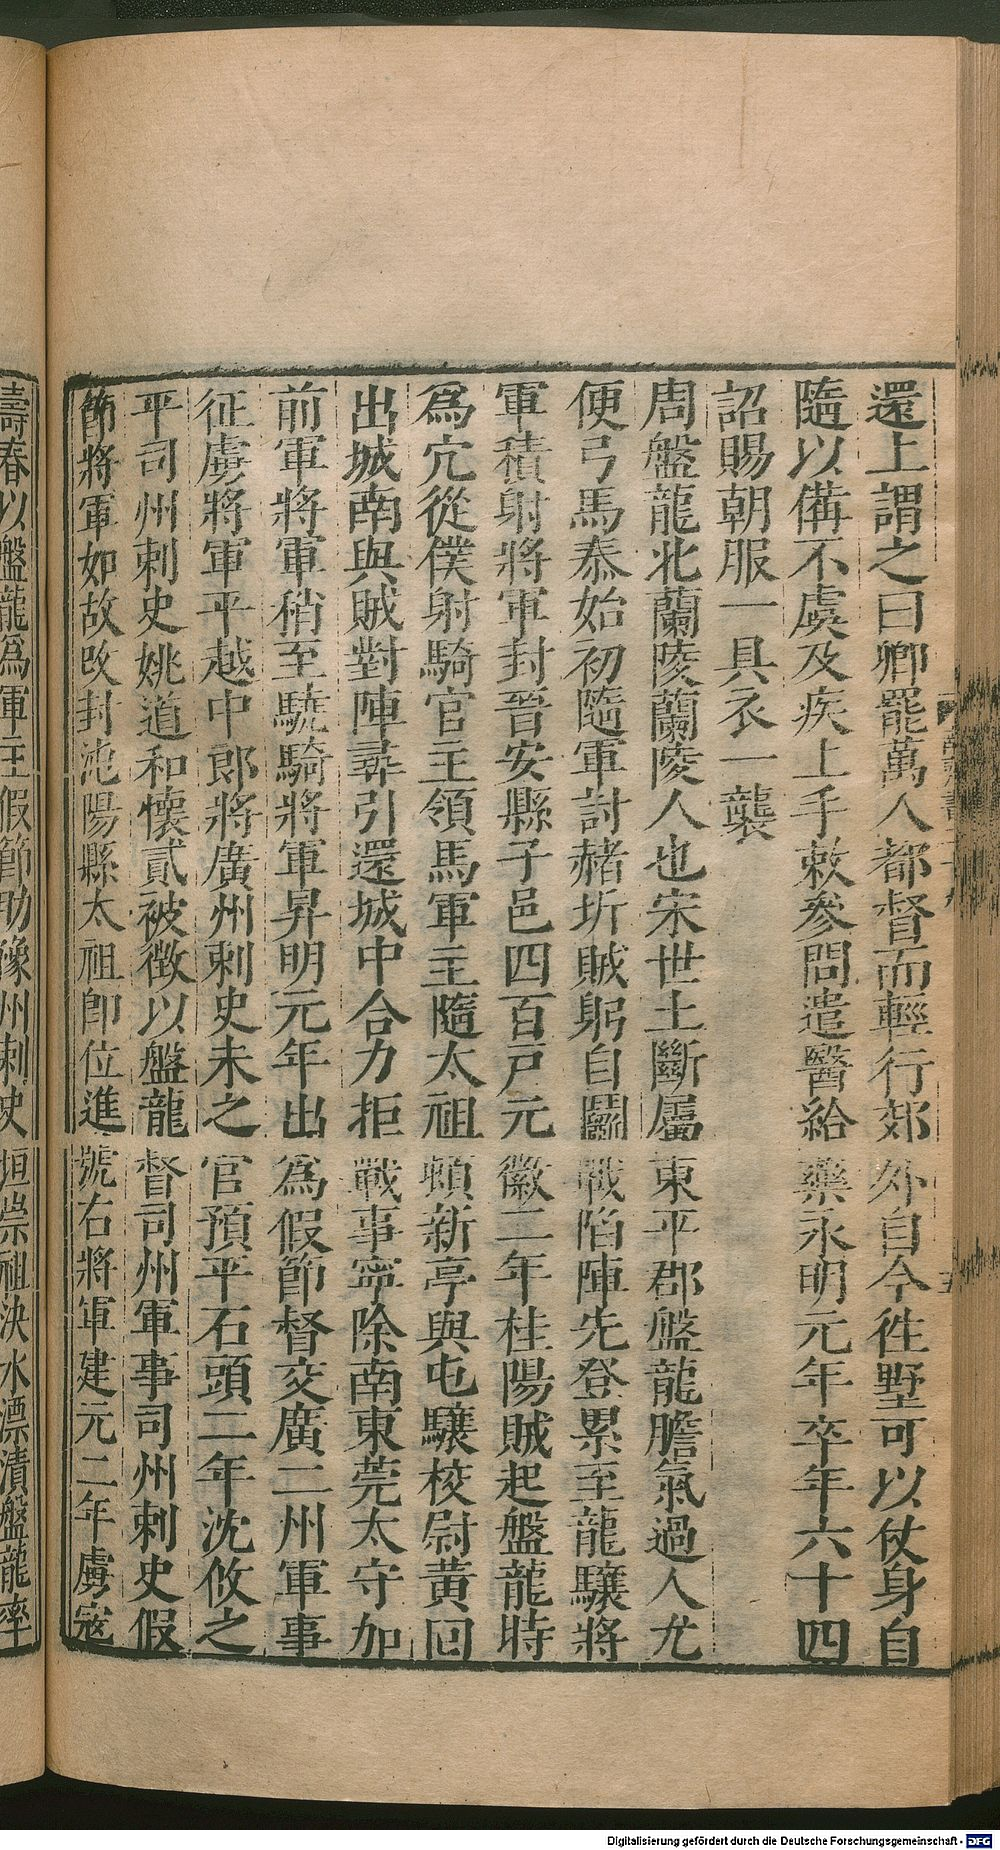 還上謂之曰卿罷萬人都督而輕行郊外自今徃墅可以仗身自
隨以備不虞及疾上手敕參問遣醫給藥永明元年卒年六十四
詔賜朝服一具衣一襲
周盤龍北蘭陵蘭陵人也宋世土斷屬東平郡盤龍膽氣過人尤
便弓馬泰始初隨軍討赭圻賊躬自鬭戰陷陣先登累至龍驤將
軍積射將軍封晉安縣子邑四百戸元徽二年桂陽賊起盤龍時
爲冗從僕射騎官主領馬軍主隨太祖頓新亭與屯驤校尉黄回
出城南與賊對陣尋引還城中合力拒戰事寧除南東莞太守加
前軍將軍稍至驍騎將軍昇明元年出爲假節督交廣二州軍事
征虜將軍平越中郎將廣州刺史未之官預平石頭二年沈攸之
平司州刺史姚道和懷貳被徵以盤龍督司州軍事司州刺史假
節將軍如故改封沌陽縣太祖卽位進號右將軍建元二年虜寇
壽春以盤龍爲軍主假節助豫州刺史垣崇祖決水漂漬盤龍率
Digitalisierung gefördert durch die Deutsche Forschungsgemeinschaft - DFG